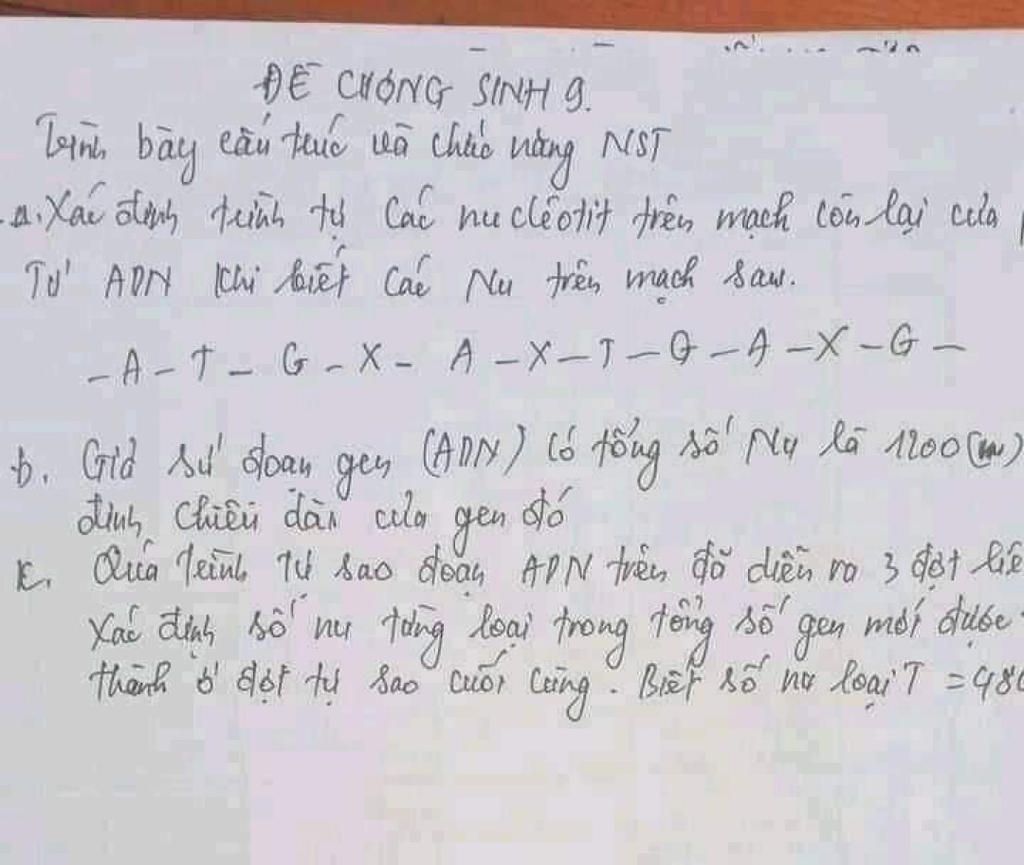 ĐỀ CHÓNG SINH 9.
Trình bày cấu trúc và chức năng NST
a. Xác định trình tự các nuclêotit trên mạch còn lại của
Tử ADN khi biết các Nu trên mạch sau.
- A - T - G - X - A - X - T - G - A - X - G -
b. Giả sử đoạn gen (ADN) có tổng số Nu là 1200 (nu)
định chiều dài của gen đó
c. Quá trình tự sao đoạn ADN trên đã diễn ra 3 đợt liê
Xác định số nu từng loại trong tổng số gen mới được
thành ở đợt tự sao cuối cùng. Biết số nu loại T = 480